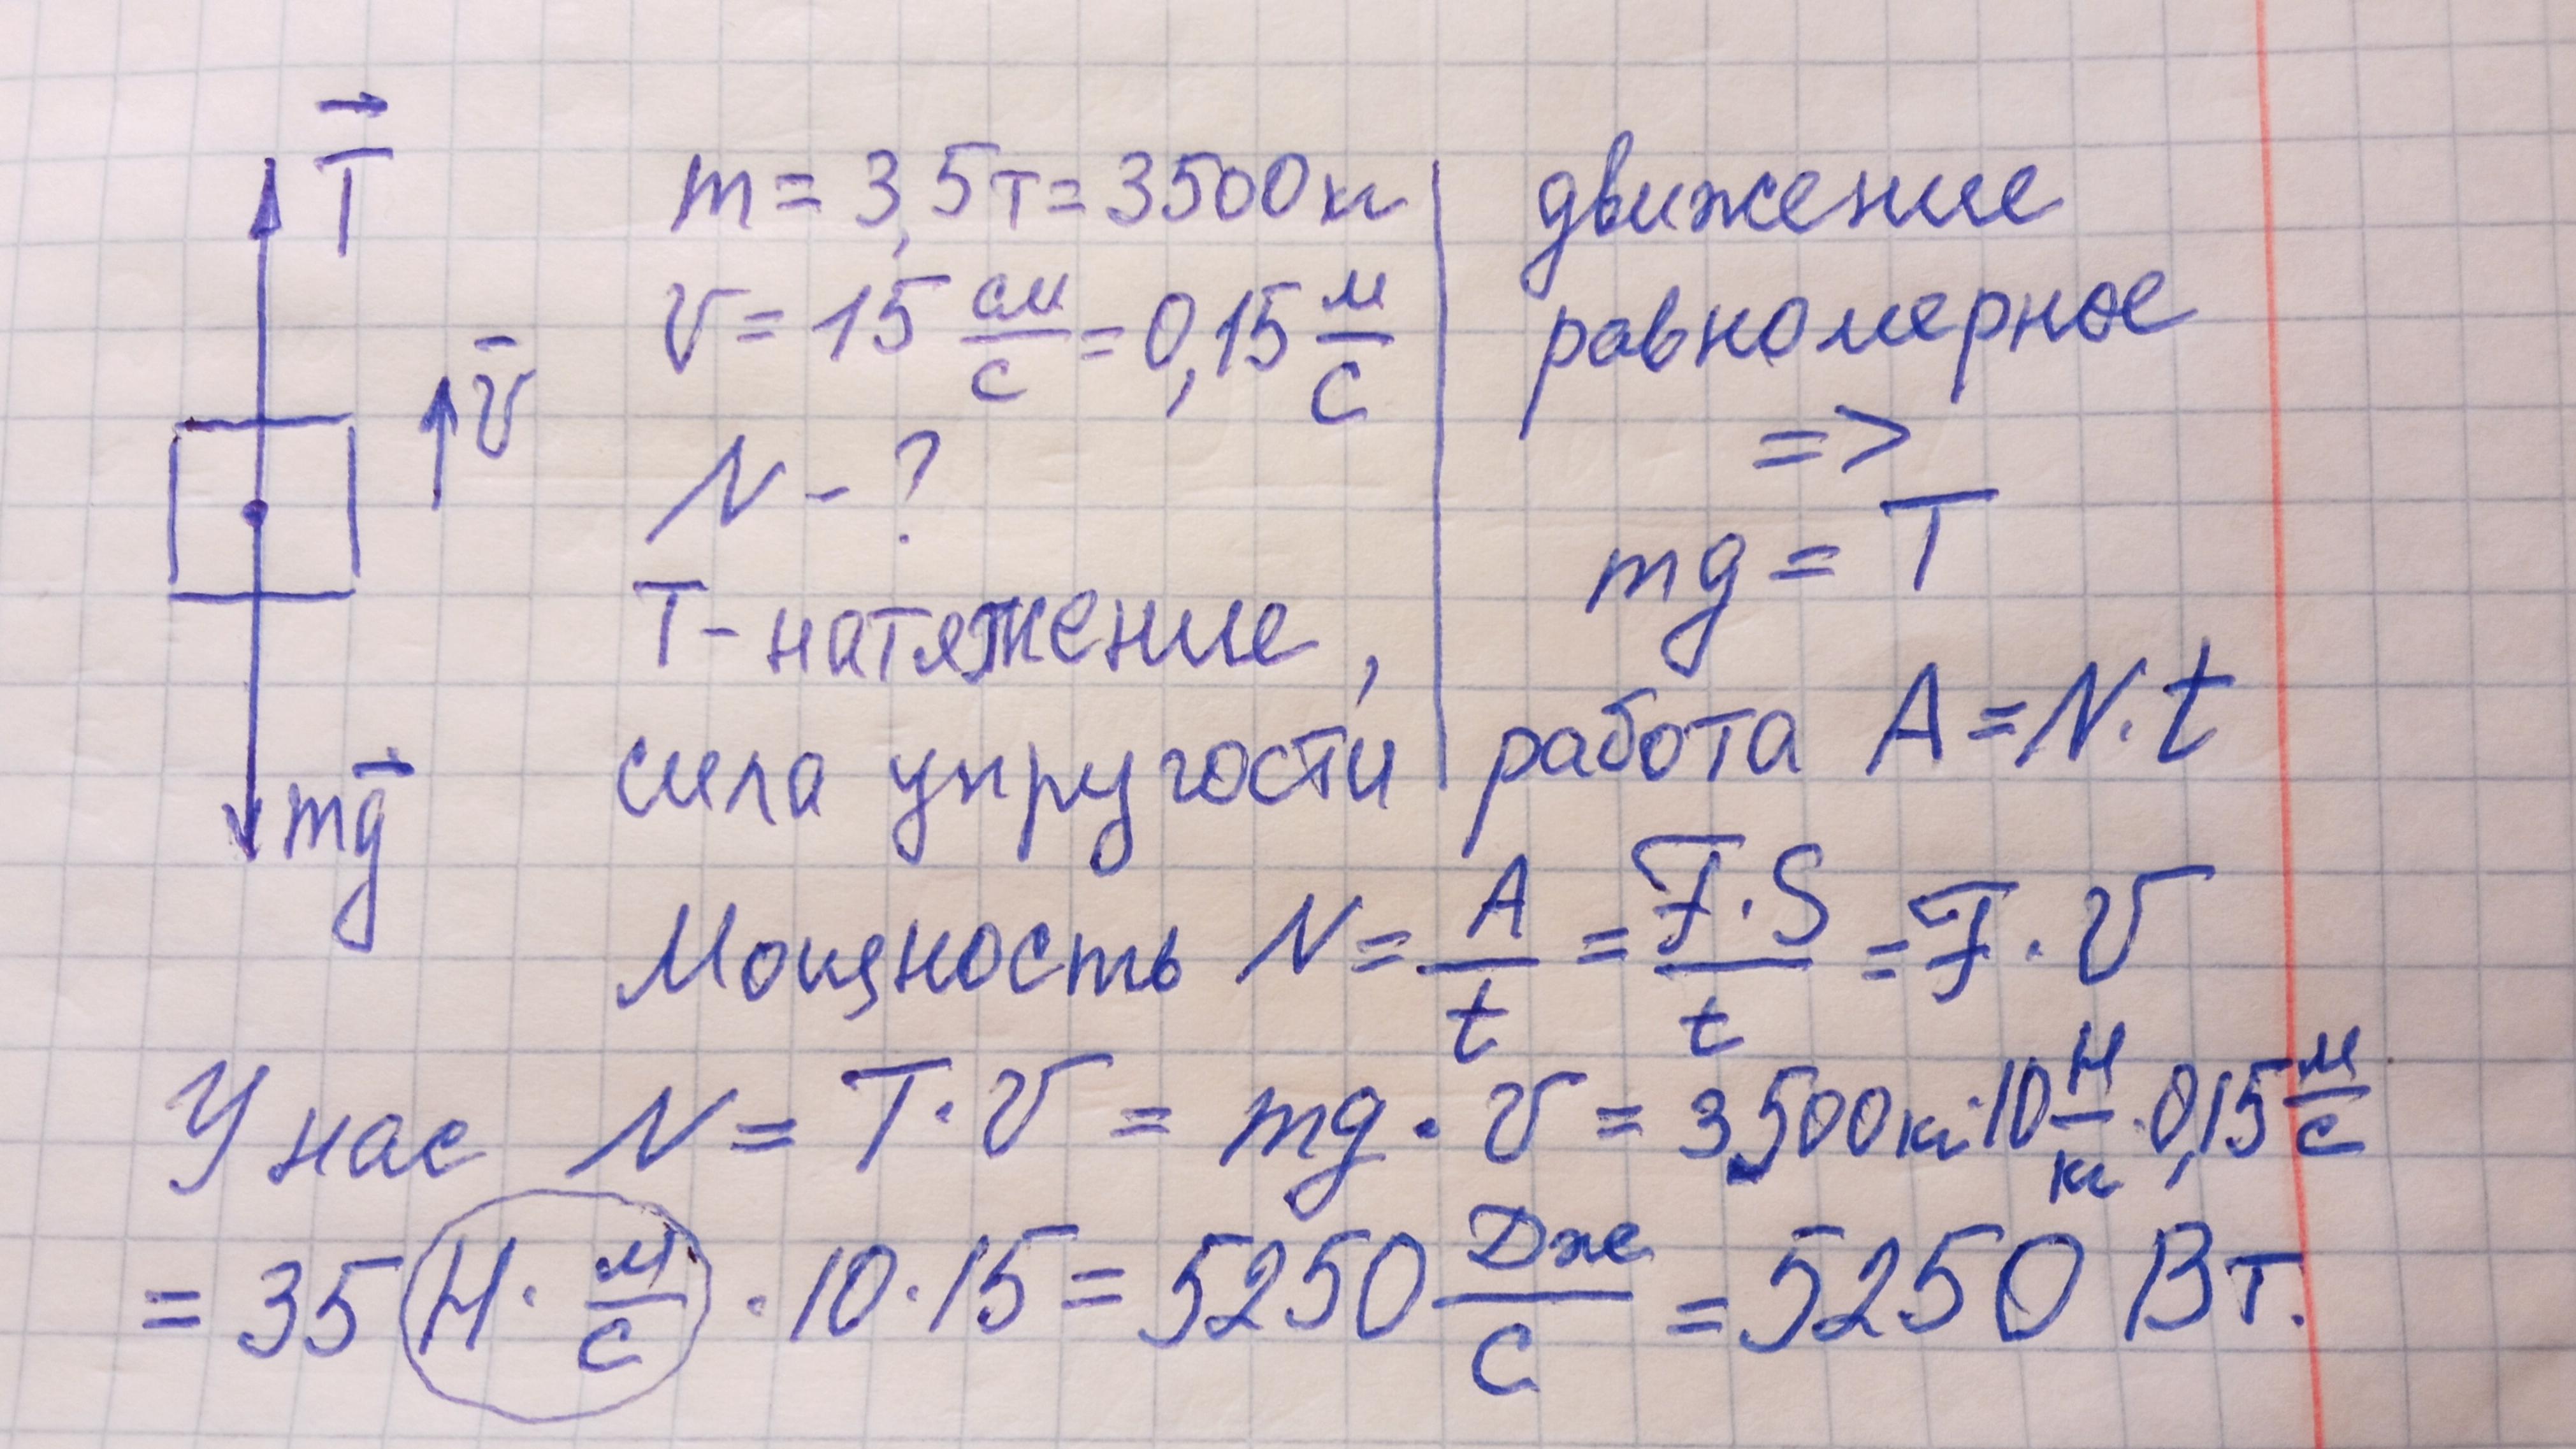 T
v
mg
m = 3,5т = 3500 кг
v = 15 см/с = 0,15 м/с
N - ?
T - натяжение,
сила упругости
движение
равномерное
=>
mg = T
работа A = N · t
Мощность N = A/t = F · S/t = F · v
У нас N = T · v = mg · v = 3500 кг · 10 Н/кг · 0,15 м/с
= 35 Н · м/с · 10 · 15 = 5250 Дж/с = 5250 Вт.